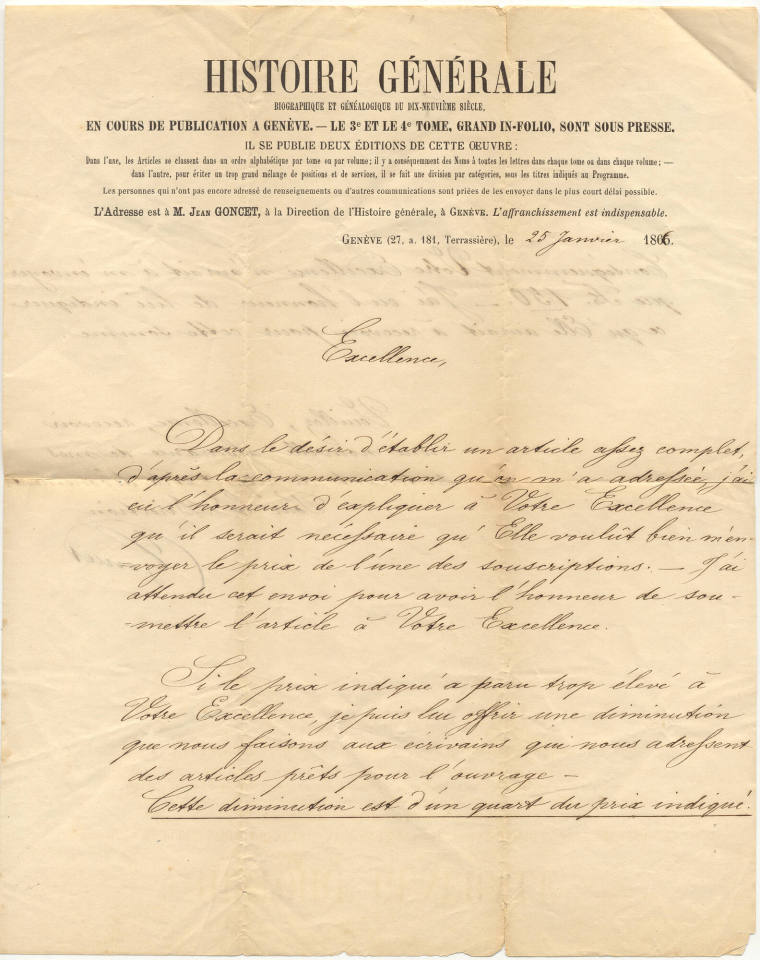 HISTOIRE GÉNÉRALE
BIOGRAPHIQUE ET GÉNÉALOGIQUE DU DIX-NEUVIÈME SIÈCLE,
EN COURS DE PUBLICATION A GENÈVE. — LE 3e ET LE 4e TOME, GRAND IN-FOLIO, SONT SOUS PRESSE.
IL SE PUBLIE DEUX ÉDITIONS DE CETTE ŒUVRE :
Dans l'une, les Articles se classent dans un ordre alphabétique par tome ou par volume ; il y a conséquemment des Noms à toutes les lettres dans chaque tome ou dans chaque volume ; —
dans l'autre, pour éviter un trop grand mélange de positions et de services, il se fait une division par catégories, sous les titres indiqués au Programme.
Les personnes qui n'ont pas encore adressé de renseignements ou d'autres communications sont priées de les envoyer dans le plus court délai possible.
L'Adresse est à M. JEAN GONCET, à la Direction de l'Histoire générale, à GENÈVE. L'affranchissement est indispensable.
GENÈVE (27, a. 181, Terrassière), le 25 Janvier 1866.
Excellence,
Dans le désir d'établir un article assez complet,
d'après la communication qu'on m'a adressée, j'ai
eu l'honneur d'expliquer à Votre Excellence
qu'il serait nécessaire qu'Elle voulût bien m'en-
voyer le prix de l'une des souscriptions. — J'ai
attendu cet envoi pour avoir l'honneur de sou-
-mettre l'article à Votre Excellence.
Si le prix indiqué a paru trop élevé à
Votre Excellence, je puis lui offrir une diminution
que nous faisons aux écrivains qui nous adressent
des articles prêts pour l'ouvrage —
Cette diminution est d'un quart du prix indiqué.